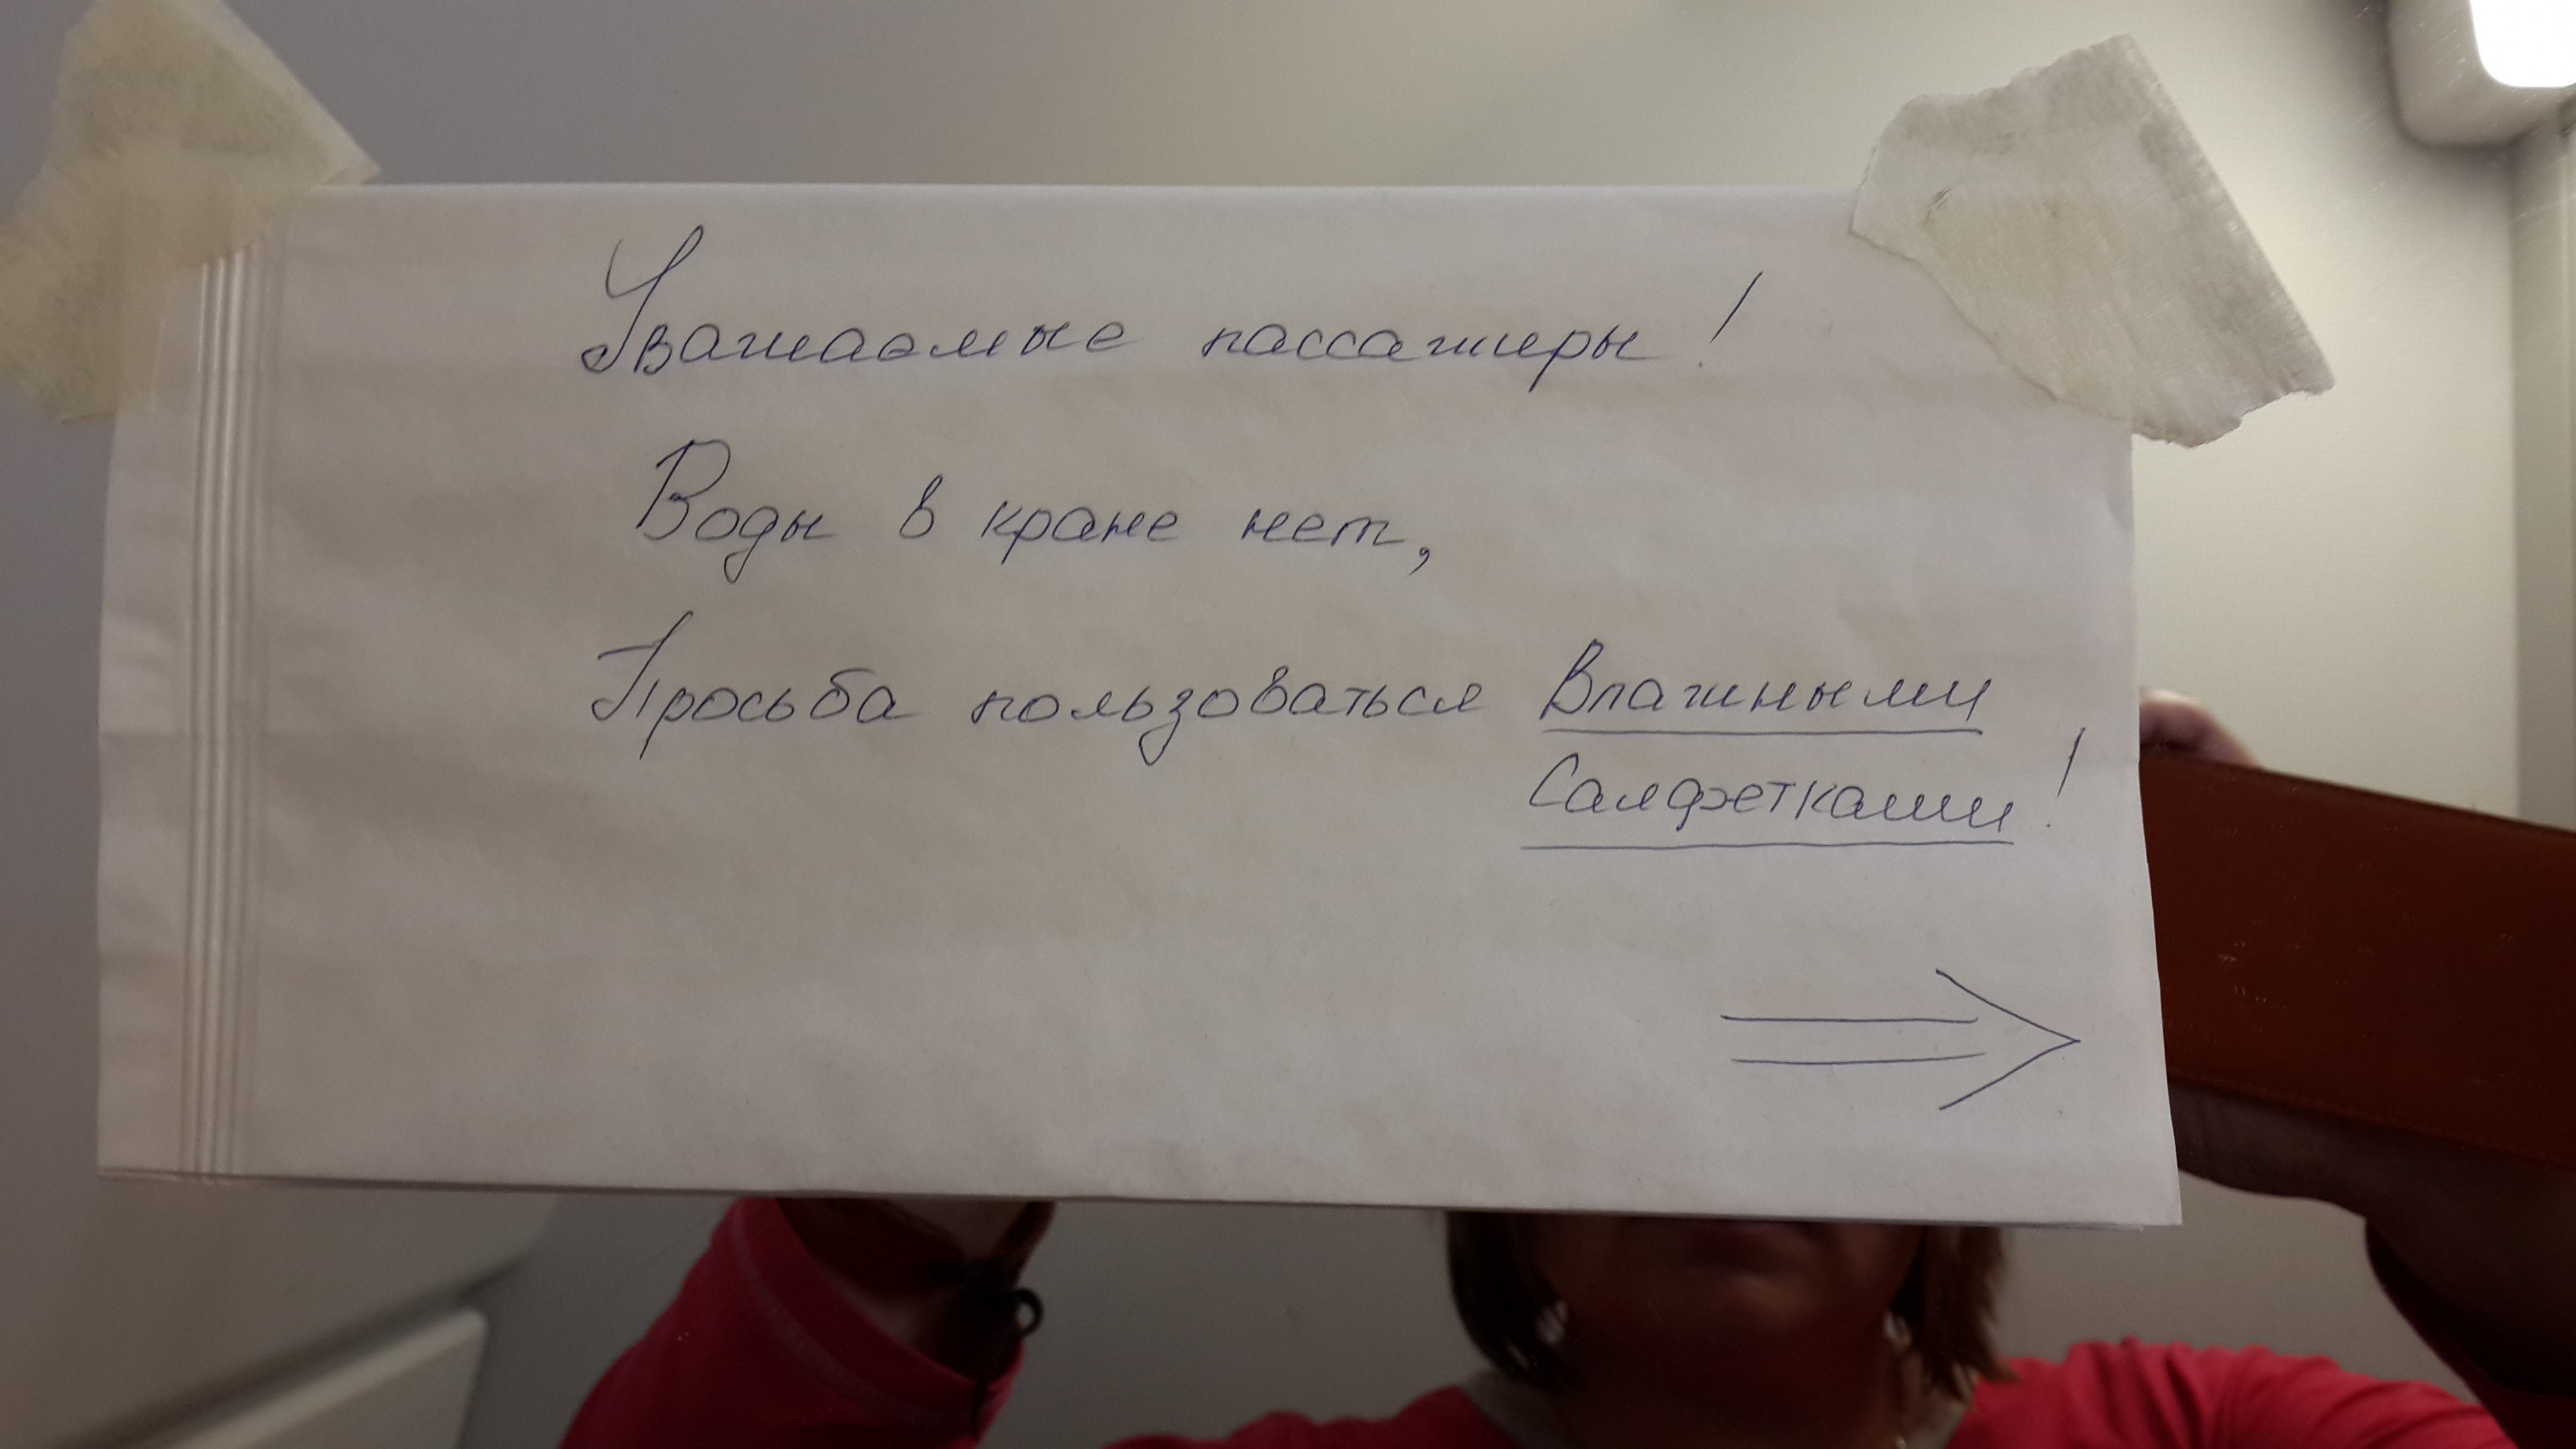 Уважаемые пассажиры!
Воды в кране нет,
Просьба пользоваться Влажными
Салфетками!